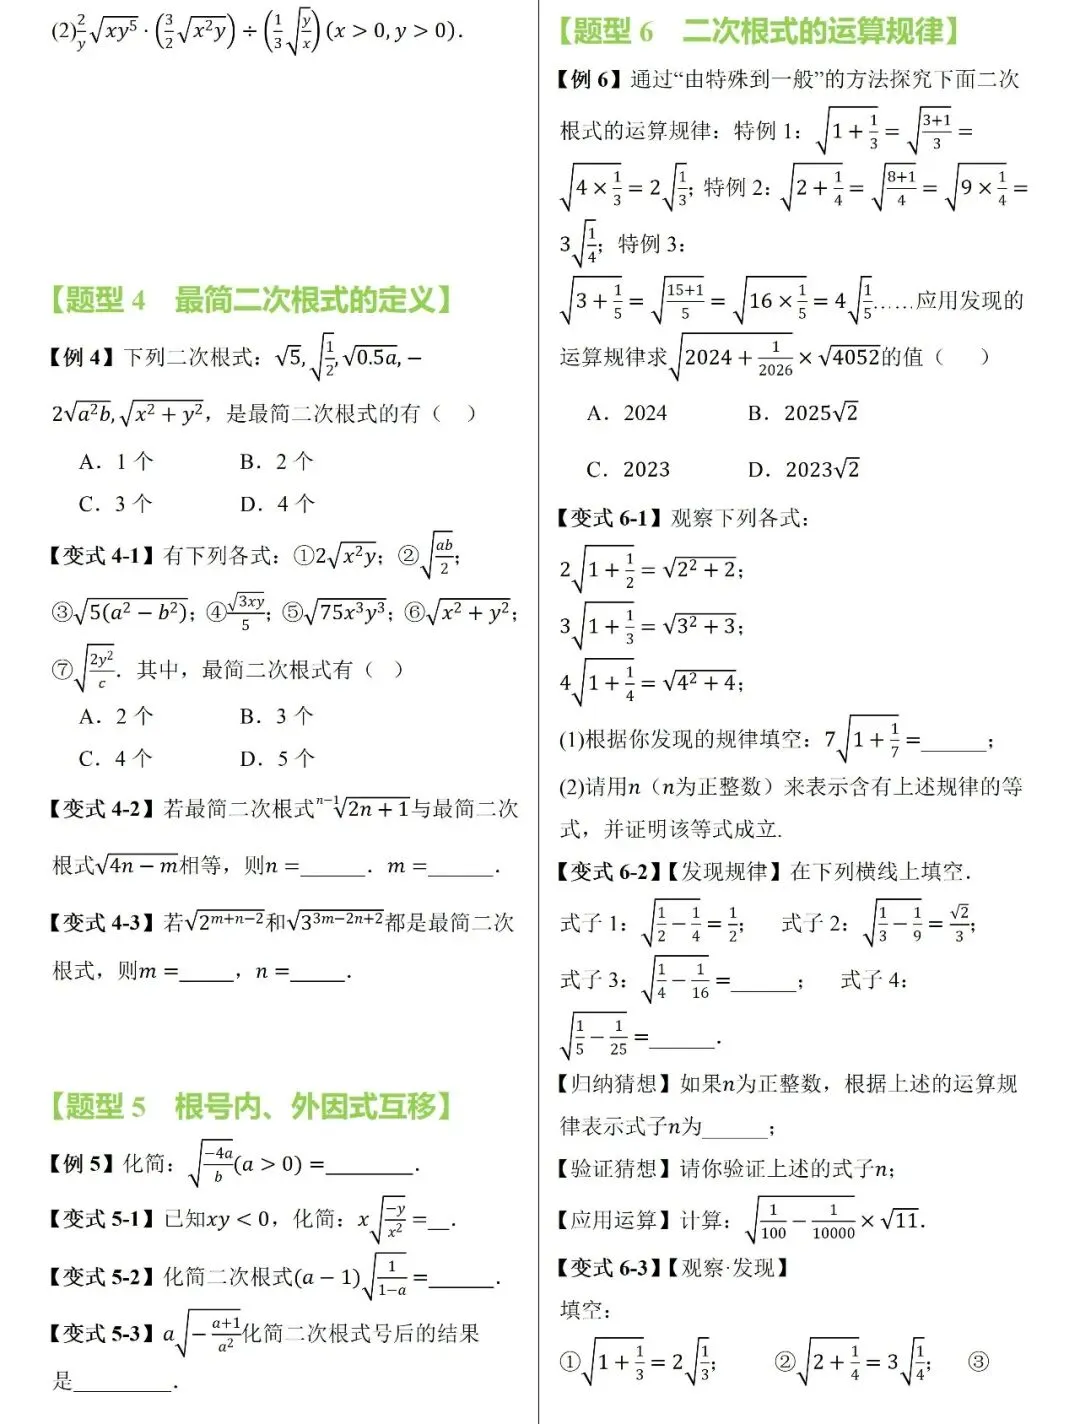 (2)$\frac{2}{y}\sqrt{xy^5}\cdot\left(\frac{3}{2}\sqrt{x^2y}\right)\div\left(\frac{1}{3}\sqrt{\frac{y}{x}}\right)(x>0,y>0)$.
【题型 4 最简二次根式的定义】
【例 4】下列二次根式：$\sqrt{5},\sqrt{\frac{1}{2}},\sqrt{0.5a},-$
$2\sqrt{a^2b},\sqrt{x^2+y^2}$，是最简二次根式的有（ ）
A．1 个 B．2 个
C．3 个 D．4 个
【变式 4-1】有下列各式：①$2\sqrt{x^2y}$；②$\sqrt{\frac{ab}{2}}$；
③$\sqrt{5(a^2-b^2)}$；④$\frac{\sqrt{3xy}}{5}$；⑤$\sqrt{75x^3y^3}$；⑥$\sqrt{x^2+y^2}$；
⑦$\sqrt{\frac{2y^2}{c}}$．其中，最简二次根式有（ ）
A．2 个 B．3 个
C．4 个 D．5 个
【变式 4-2】若最简二次根式$\sqrt[n-1]{2n+1}$与最简二次
根式$\sqrt{4n-m}$相等，则$n=$______．$m=$______．
【变式 4-3】若$\sqrt{2^{m+n-2}}$和$\sqrt{3^{3m-2n+2}}$都是最简二次
根式，则$m=$_____，$n=$_____．
【题型 5 根号内、外因式互移】
【例 5】化简：$\sqrt{\frac{-4a}{b}}(a>0)=$________．
【变式 5-1】已知$xy<0$，化简：$x\sqrt{\frac{-y}{x^2}}=$__．
【变式 5-2】化简二次根式$(a-1)\sqrt{\frac{1}{1-a}}=$______．
【变式 5-3】$a\sqrt{-\frac{a+1}{a^2}}$化简二次根式号后的结果
是_________．
【题型 6 二次根式的运算规律】
【例 6】通过“由特殊到一般”的方法探究下面二次
根式的运算规律：特例 1：$\sqrt{1+\frac{1}{3}}=\sqrt{\frac{3+1}{3}}=$
$\sqrt{4\times\frac{1}{3}}=2\sqrt{\frac{1}{3}}$；特例 2：$\sqrt{2+\frac{1}{4}}=\sqrt{\frac{8+1}{4}}=\sqrt{9\times\frac{1}{4}}=$
$3\sqrt{\frac{1}{4}}$；特例 3：
$\sqrt{3+\frac{1}{5}}=\sqrt{\frac{15+1}{5}}=\sqrt{16\times\frac{1}{5}}=4\sqrt{\frac{1}{5}}$……应用发现的
运算规律求$\sqrt{2024+\frac{1}{2026}}\times\sqrt{4052}$的值（ ）
A．2024 B．$2025\sqrt{2}$
C．2023 D．$2023\sqrt{2}$
【变式 6-1】观察下列各式：
$2\sqrt{1+\frac{1}{2}}=\sqrt{2^2+2}$；
$3\sqrt{1+\frac{1}{3}}=\sqrt{3^2+3}$；
$4\sqrt{1+\frac{1}{4}}=\sqrt{4^2+4}$；
(1)根据你发现的规律填空：$7\sqrt{1+\frac{1}{7}}=$______；
(2)请用$n$（$n$为正整数）来表示含有上述规律的等
式，并证明该等式成立.
【变式 6-2】【发现规律】在下列横线上填空．
式子 1：$\sqrt{\frac{1}{2}-\frac{1}{4}}=\frac{1}{2}$； 式子 2：$\sqrt{\frac{1}{3}-\frac{1}{9}}=\frac{\sqrt{2}}{3}$；
式子 3：$\sqrt{\frac{1}{4}-\frac{1}{16}}=$______； 式子 4：
$\sqrt{\frac{1}{5}-\frac{1}{25}}=$______．
【归纳猜想】如果$n$为正整数，根据上述的运算规
律表示式子$n$为______；
【验证猜想】请你验证上述的式子$n$；
【应用运算】计算：$\sqrt{\frac{1}{100}-\frac{1}{10000}}\times\sqrt{11}$．
【变式 6-3】【观察·发现】
填空：
①$\sqrt{1+\frac{1}{3}}=2\sqrt{\frac{1}{3}}$； ②$\sqrt{2+\frac{1}{4}}=3\sqrt{\frac{1}{4}}$； ③